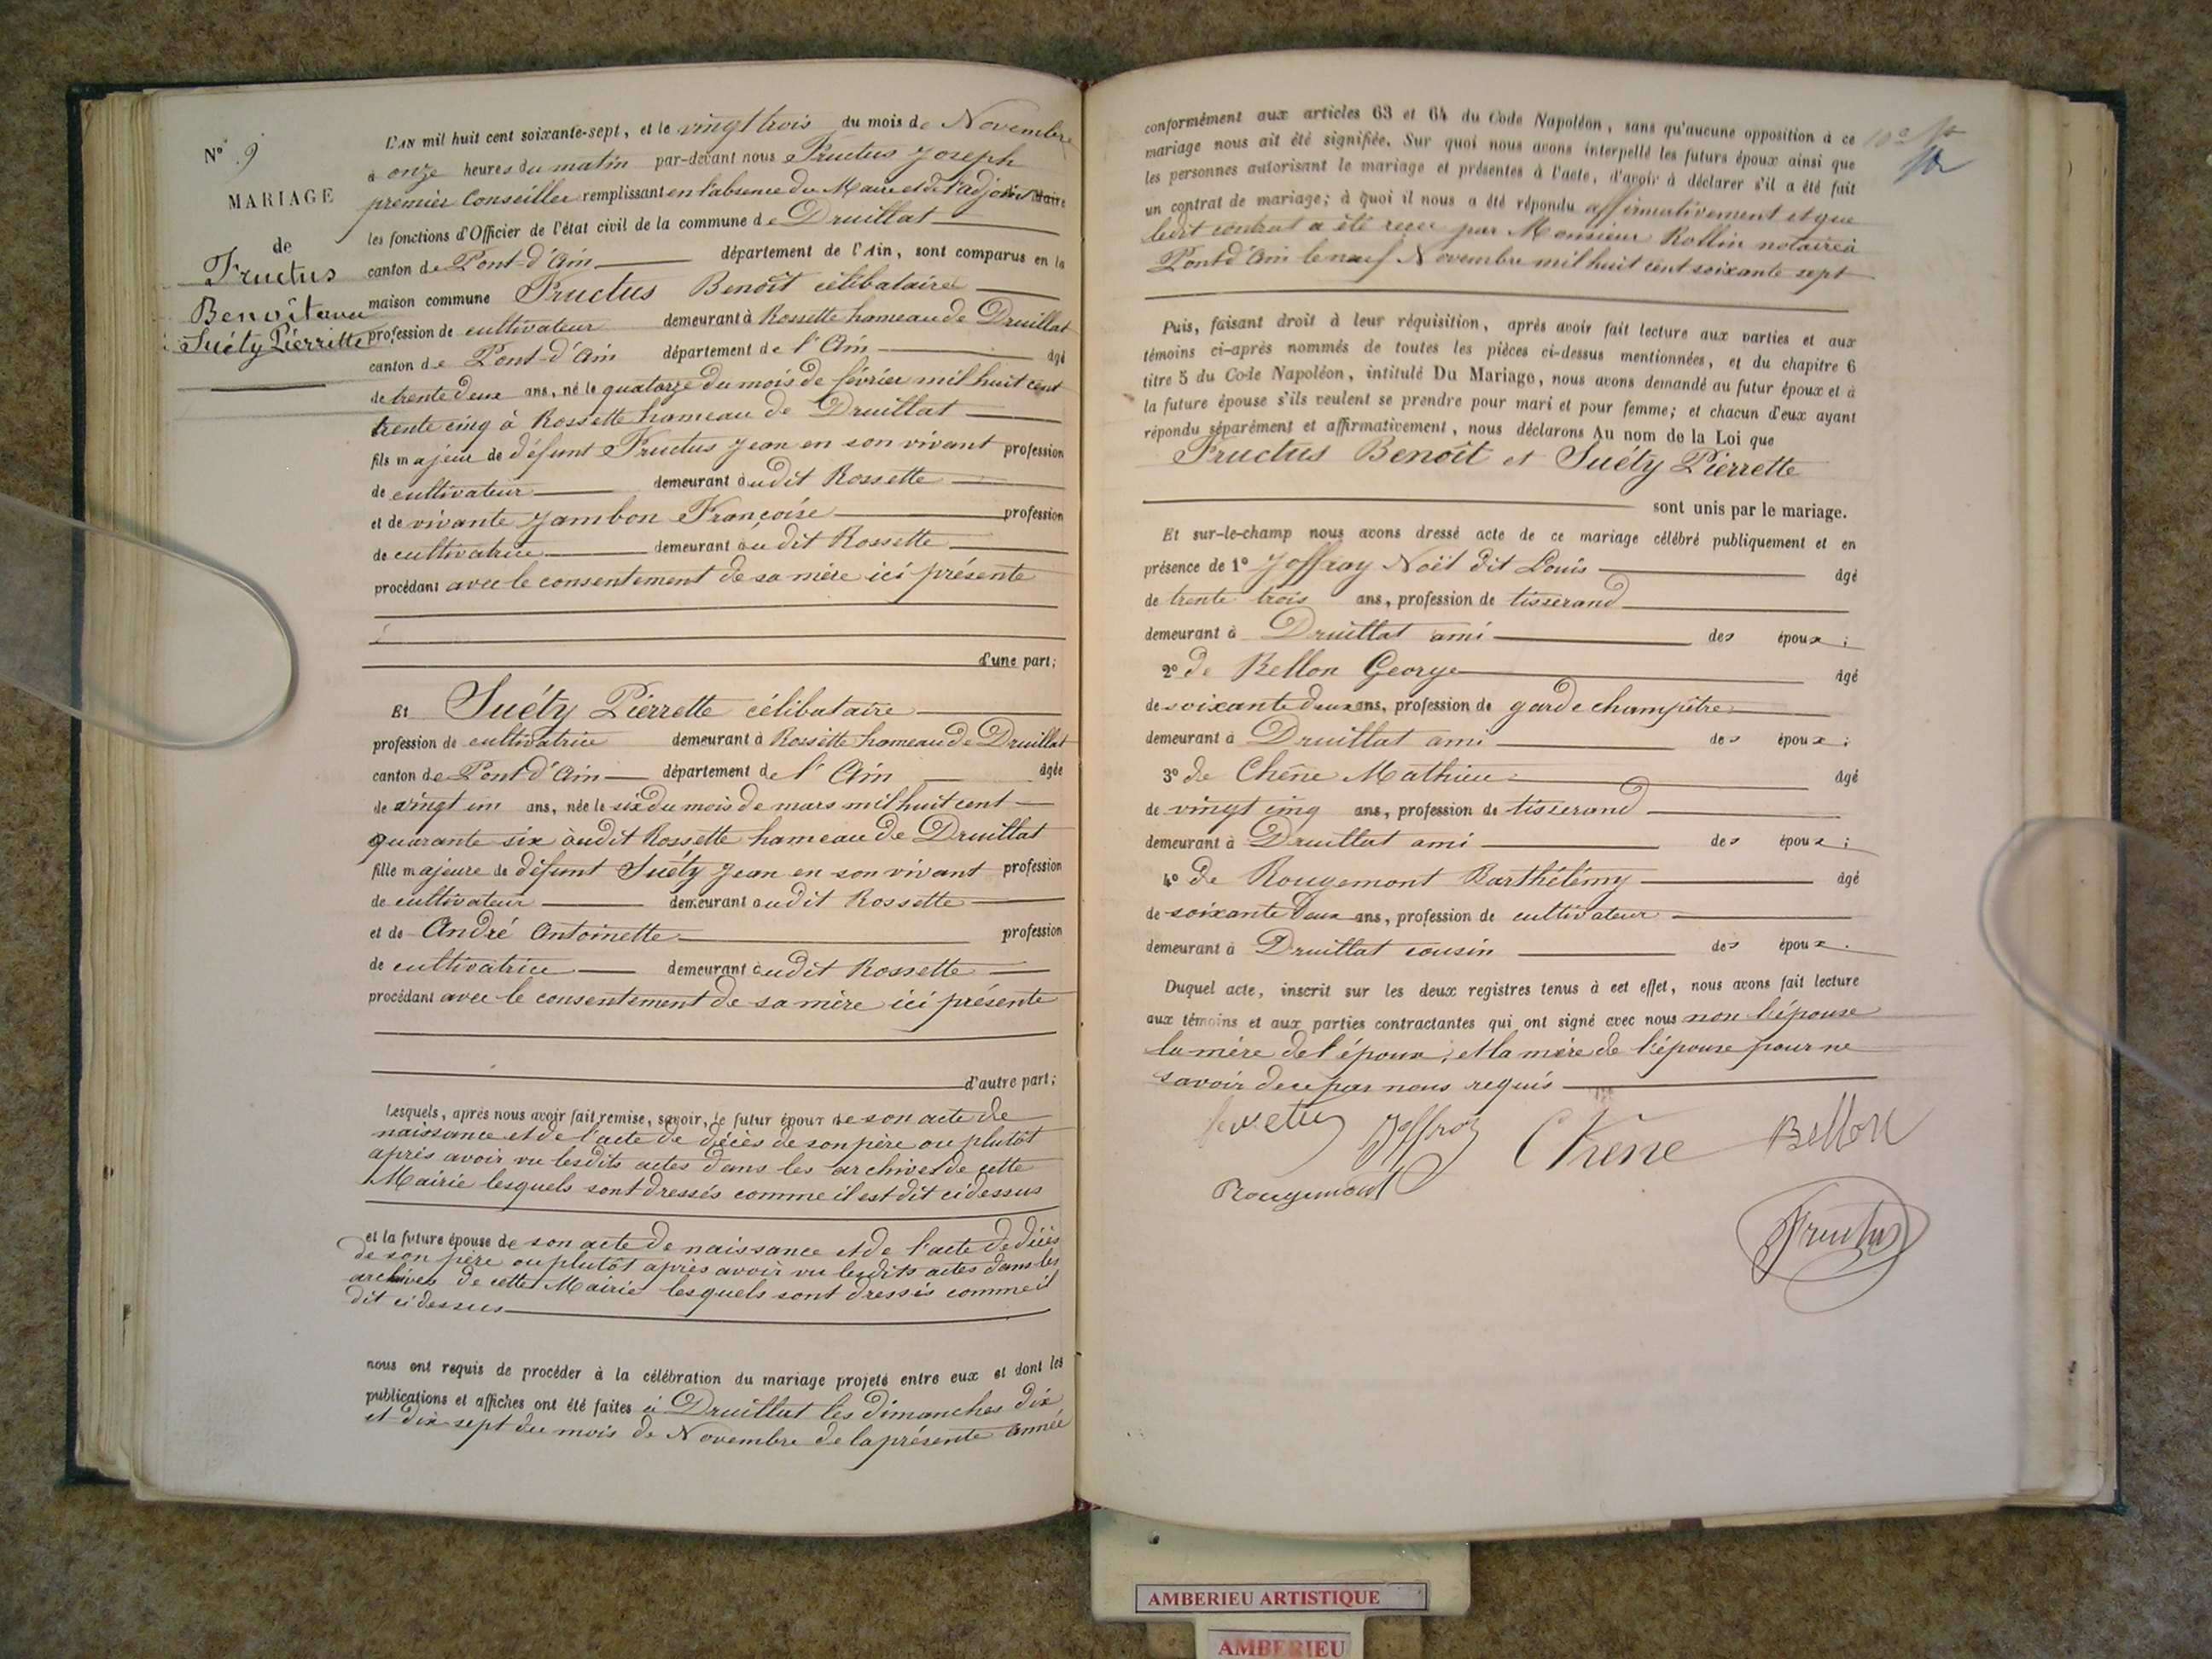 N° 9
MARIAGE
de
Fructus
Benoît avec
Suéty Pierrette
L'AN mil huit cent soixante-sept, et le vingt trois du mois de Novembre
à onze heures du matin par-devant nous Fructus Joseph
premier Conseiller remplissant en l'absence du Maire et de l'adjoint
les fonctions d'Officier de l'état civil de la commune de Druillat
canton de Pont-d'Ain département de l'Ain, sont comparus en la
maison commune Fructus Benoît célibataire
profession de cultivateur demeurant à Rossette hameau de Druillat
canton de Pont-d'Ain département de l'Ain âgé
de trente deux ans, né le quatorze du mois de février mil huit cent
trente cinq à Rossette hameau de Druillat
fils majeur de défunt Fructus Jean en son vivant profession
de cultivateur demeurant audit Rossette
et de vivante Jambon Françoise profession
de cultivatrice demeurant audit Rossette
procédant avec le consentement de sa mère ici présente
d'une part;
Et Suéty Pierrette célibataire
profession de cultivatrice demeurant à Rossette hameau de Druillat
canton de Pont d'Ain département de l'Ain âgée
de vingt un ans, née le six du mois de mars mil huit cent
quarante six audit Rossette hameau de Druillat
fille majeure de défunt Suéty Jean en son vivant profession
de cultivateur demeurant audit Rossette
et de André Antoinette profession
de cultivatrice demeurant audit Rossette
procédant avec le consentement de sa mère ici présente
d'autre part;
Lesquels, après nous avoir fait remise, savoir, le futur époux de son acte de
naissance et de l'acte de décès de son père ou plutôt
après avoir vu lesdits actes dans les archives de cette
Mairie lesquels sont dressés comme il est dit cidessus
et la future épouse de son acte de naissance et de l'acte de décès
de son père ou plutôt après avoir vu lesdits actes dans les
archives de cette Mairie lesquels sont dressés comme il
dit cidessus
nous ont requis de procéder à la célébration du mariage projeté entre eux et dont les
publications et affiches ont été faites à Druillat les dimanches dix
et dix sept du mois de Novembre de la présente année
conformément aux articles 63 et 64 du Code Napoléon, sans qu'aucune opposition à ce
mariage nous ait été signifiée. Sur quoi nous avons interpellé les futurs époux ainsi que
les personnes autorisant le mariage et présentes à l'acte, d'avoir à déclarer s'il a été fait
un contrat de mariage; à quoi il nous a été répondu affirmativement et que
ledit contrat a été reçu par Monsieur Rollin notaire à
Pont d'Ain le neuf Novembre mil huit cent soixante sept
Puis, faisant droit à leur réquisition, après avoir fait lecture aux parties et aux
témoins ci-après nommés de toutes les pièces ci-dessus mentionnées, et du chapitre 6
titre 5 du Code Napoléon, intitulé Du Mariage, nous avons demandé au futur époux et à
la future épouse s'ils veulent se prendre pour mari et pour femme; et chacun d'eux ayant
répondu séparément et affirmativement, nous déclarons Au nom de la Loi que
Fructus Benoît et Suéty Pierrette
sont unis par le mariage.
Et sur-le-champ nous avons dressé acte de ce mariage célébré publiquement et en
présence de 1° Joffray Noël dit Louis âgé
de trente trois ans, profession de tisserand
demeurant à Druillat ami des époux;
2° de Bellon George âgé
de soixante deux ans, profession de garde champêtre
demeurant à Druillat ami des époux;
3° de Chêne Mathieu âgé
de vingt cinq ans, profession de tisserand
demeurant à Druillat ami des époux;
4° de Rougemont Barthélémy âgé
de soixante deux ans, profession de cultivateur
demeurant à Druillat cousin des époux.
Duquel acte, inscrit sur les deux registres tenus à cet effet, nous avons fait lecture
aux témoins et aux parties contractantes qui ont signé avec nous non l'épouse
la mère de l'époux, et la mère de l'épouse pour ne
savoir dece par nous requis
Joffroy Chêne Bellon
Rougemont
Fructus
AMBERIEU ARTISTIQUE
AMBERIEU